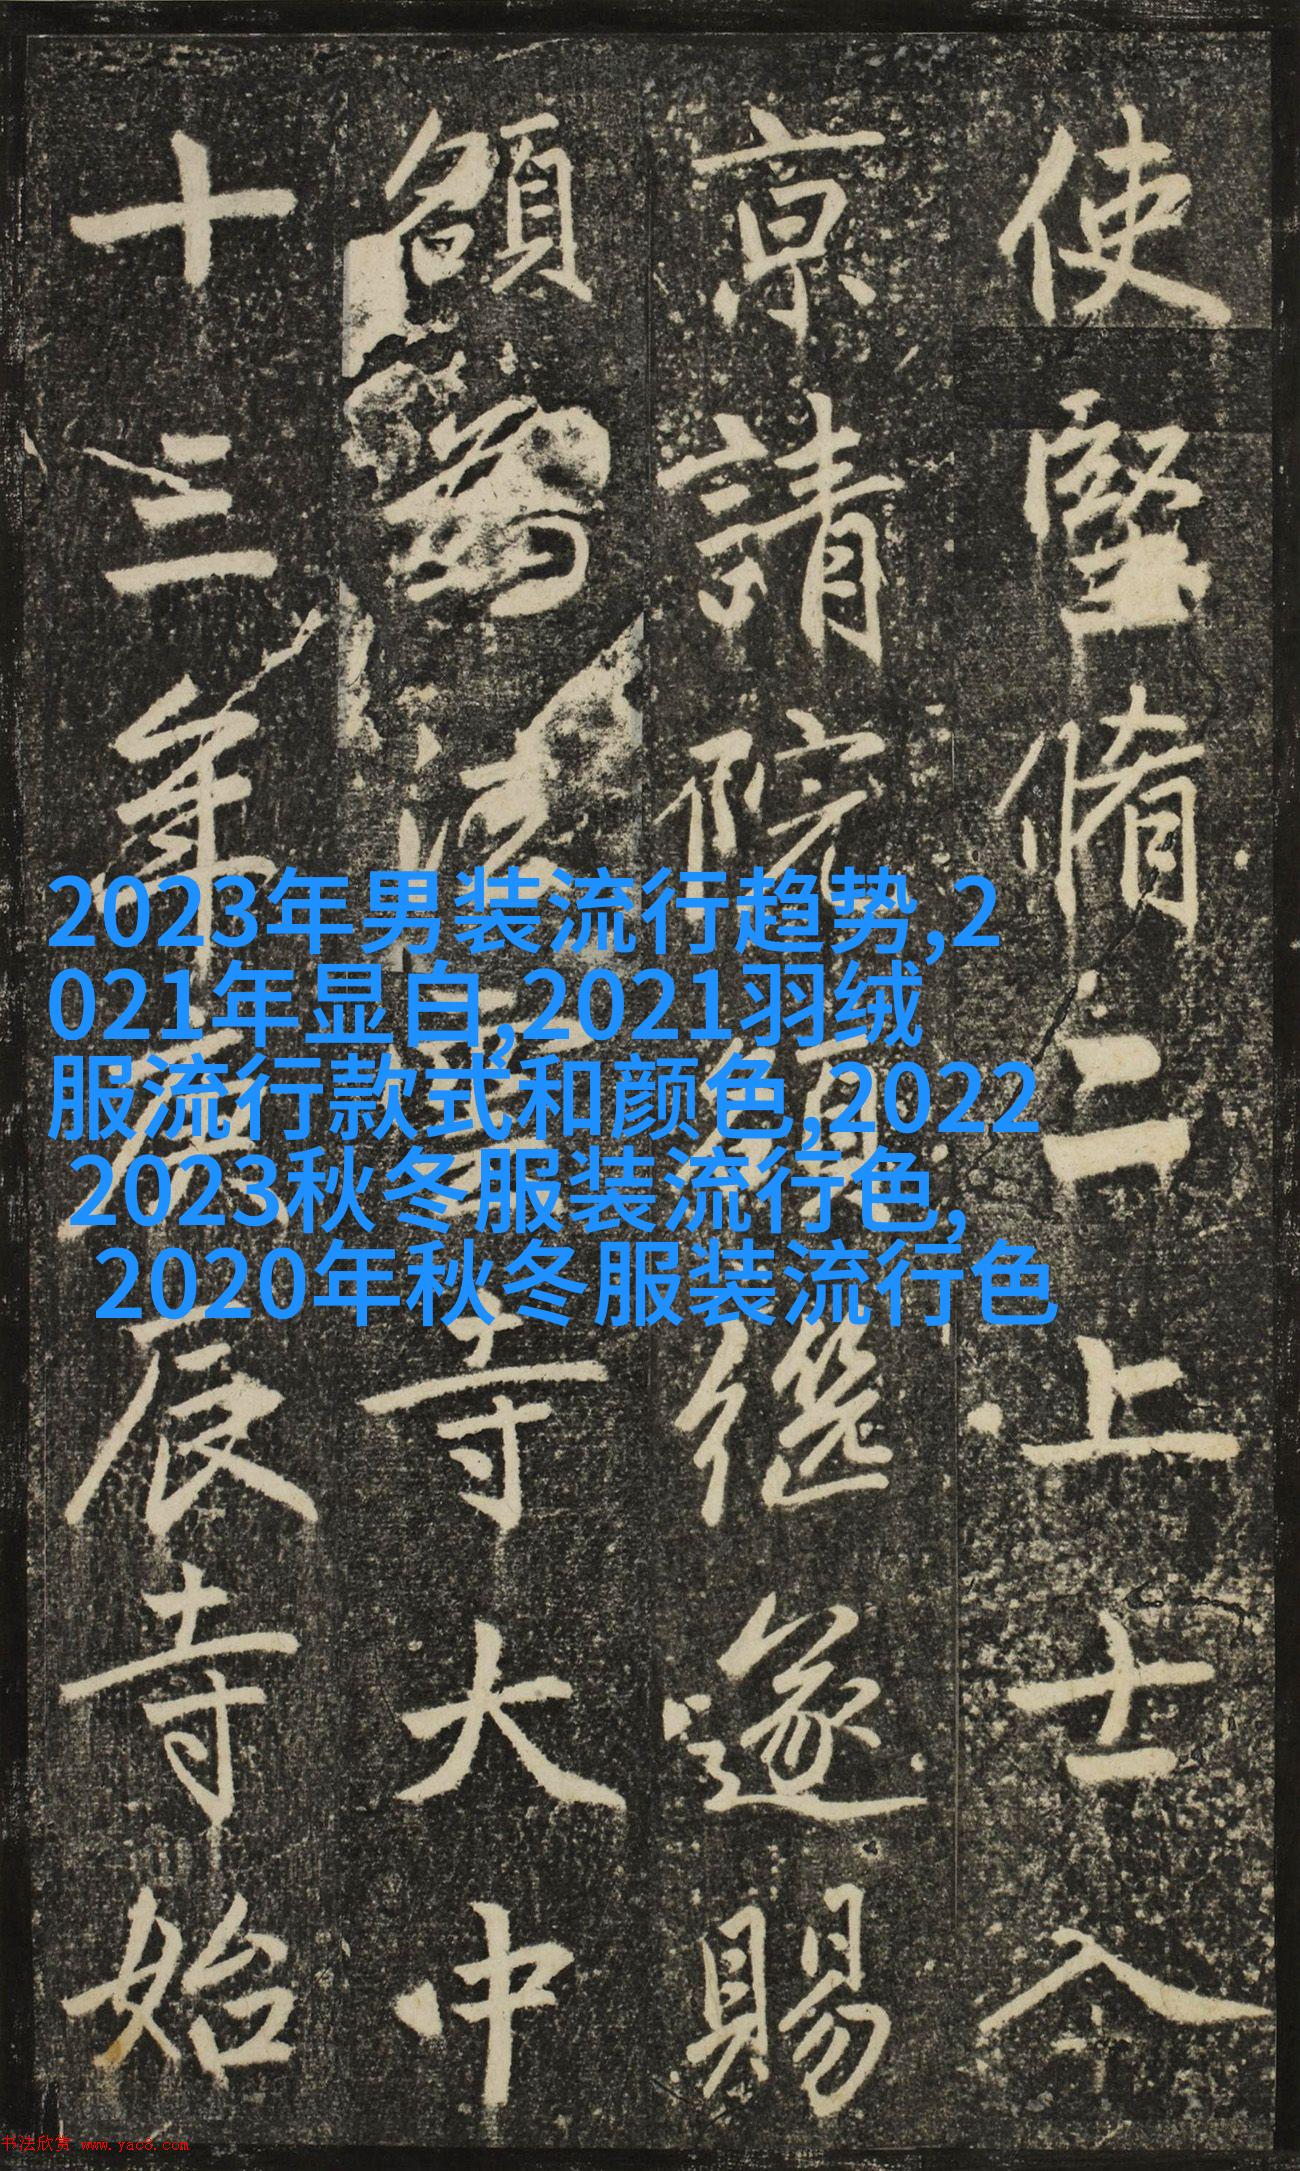 使堅脩二上士入
京請院額繼遂賜
額為法華寺大中
十三年庚辰寺始
2023年男装流行趋势,2
021年显白,2021羽绒
服流行款式和颜色,2022
2023秋冬服装流行色,
2020年秋冬服装流行色
书法欣赏 www.yac8.com